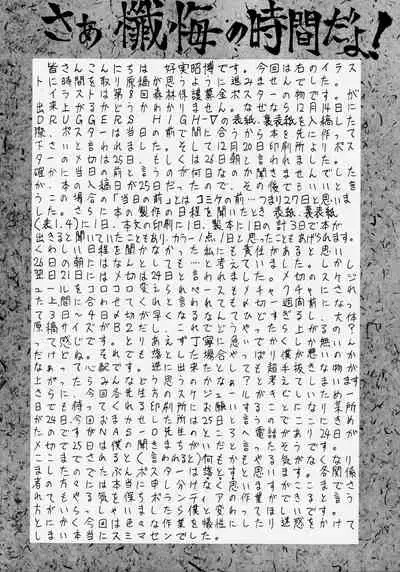 さあ 懺悔の時間だよ!
皆さんこんにちは 好実昭博です。今回は右のイラス
トに時間を取り原稿が思うように進みませんでした。
イラストは第8回森林保護募金ポスターの物です。が
出来上がるかどうかわかりません。なぜなら12月14日に
DRUGGERS HIGH~▽の表紙、裏表紙を入稿した
際、ポスターは当日の前で間に合うから本を先に作って
下さいと言われました。そして12月20日印刷所よりポスタ
ーの〆切は25日、もしくは26日朝と言われました。
確かに当日の前と言うのが何日なのか聞きませんでした
が、本の入稿日が25日だったので、その後でもいいと言
うこの場合の「当日の前」とはコミケの前―つまり27日と思いま
した。さらに本の製作の日程を聞いたとき表紙、裏表紙
(表1.4)に1日、本文の印刷に1日、製本に1日の計3日で本が
出きると聞いていたこともあり、カラー1点1日と思ったこともあげられます。
くわしい日程を聞かなかった私にも責任があると思い
26日の朝にはなんとかしようと考えていました。しかし
翌日21日には〆切は24日と言われました。〆切のスケジ
ュールをコロコロ変えられてペースもメチャクチャにされ
た上間に合わせてくれと言われても〆切一週間前になっ
て3日~4日〆切が早くなるなんてひどすぎるし、大体
原稿サイズがB2だし、これでどうやったら上がるの?
って感じです。とりあえず丁寧に急いでかくしか無いん
だけどね。それでも落とした場合やっぱり僕が悪いのか
なぁって心配です。逆に出来たとしても超手抜きな物が
上がったらみんなどう思うのかなぁ?と考えてしまいます
さらに、今回各先生方のスケジュールがきびしいため一
日でも待ってくれる印刷所にお願いすることになり某所
が待つ今回おまかせした所は25日と言うのでここにきめ
たのですがNASI−D先生のところへ電話があり24日が
〆切で25日は僕の聞きまちがいだと言ったそうです。
ここまでされると(言われると)何もかもやる気がなくなり
ましたのでたぶんポスターは落とすと思います。各関係
者の方々には本当に申し分けなく思いますがここまでさ
れてもやる気を保ちボランティアの作業ができると言う
方がいらっしゃいましたら僕と変わってほしいです。
とにかく今回は色々な作業を犠牲にしたり迷惑をかけて
しまい本当にスミマセンでした。